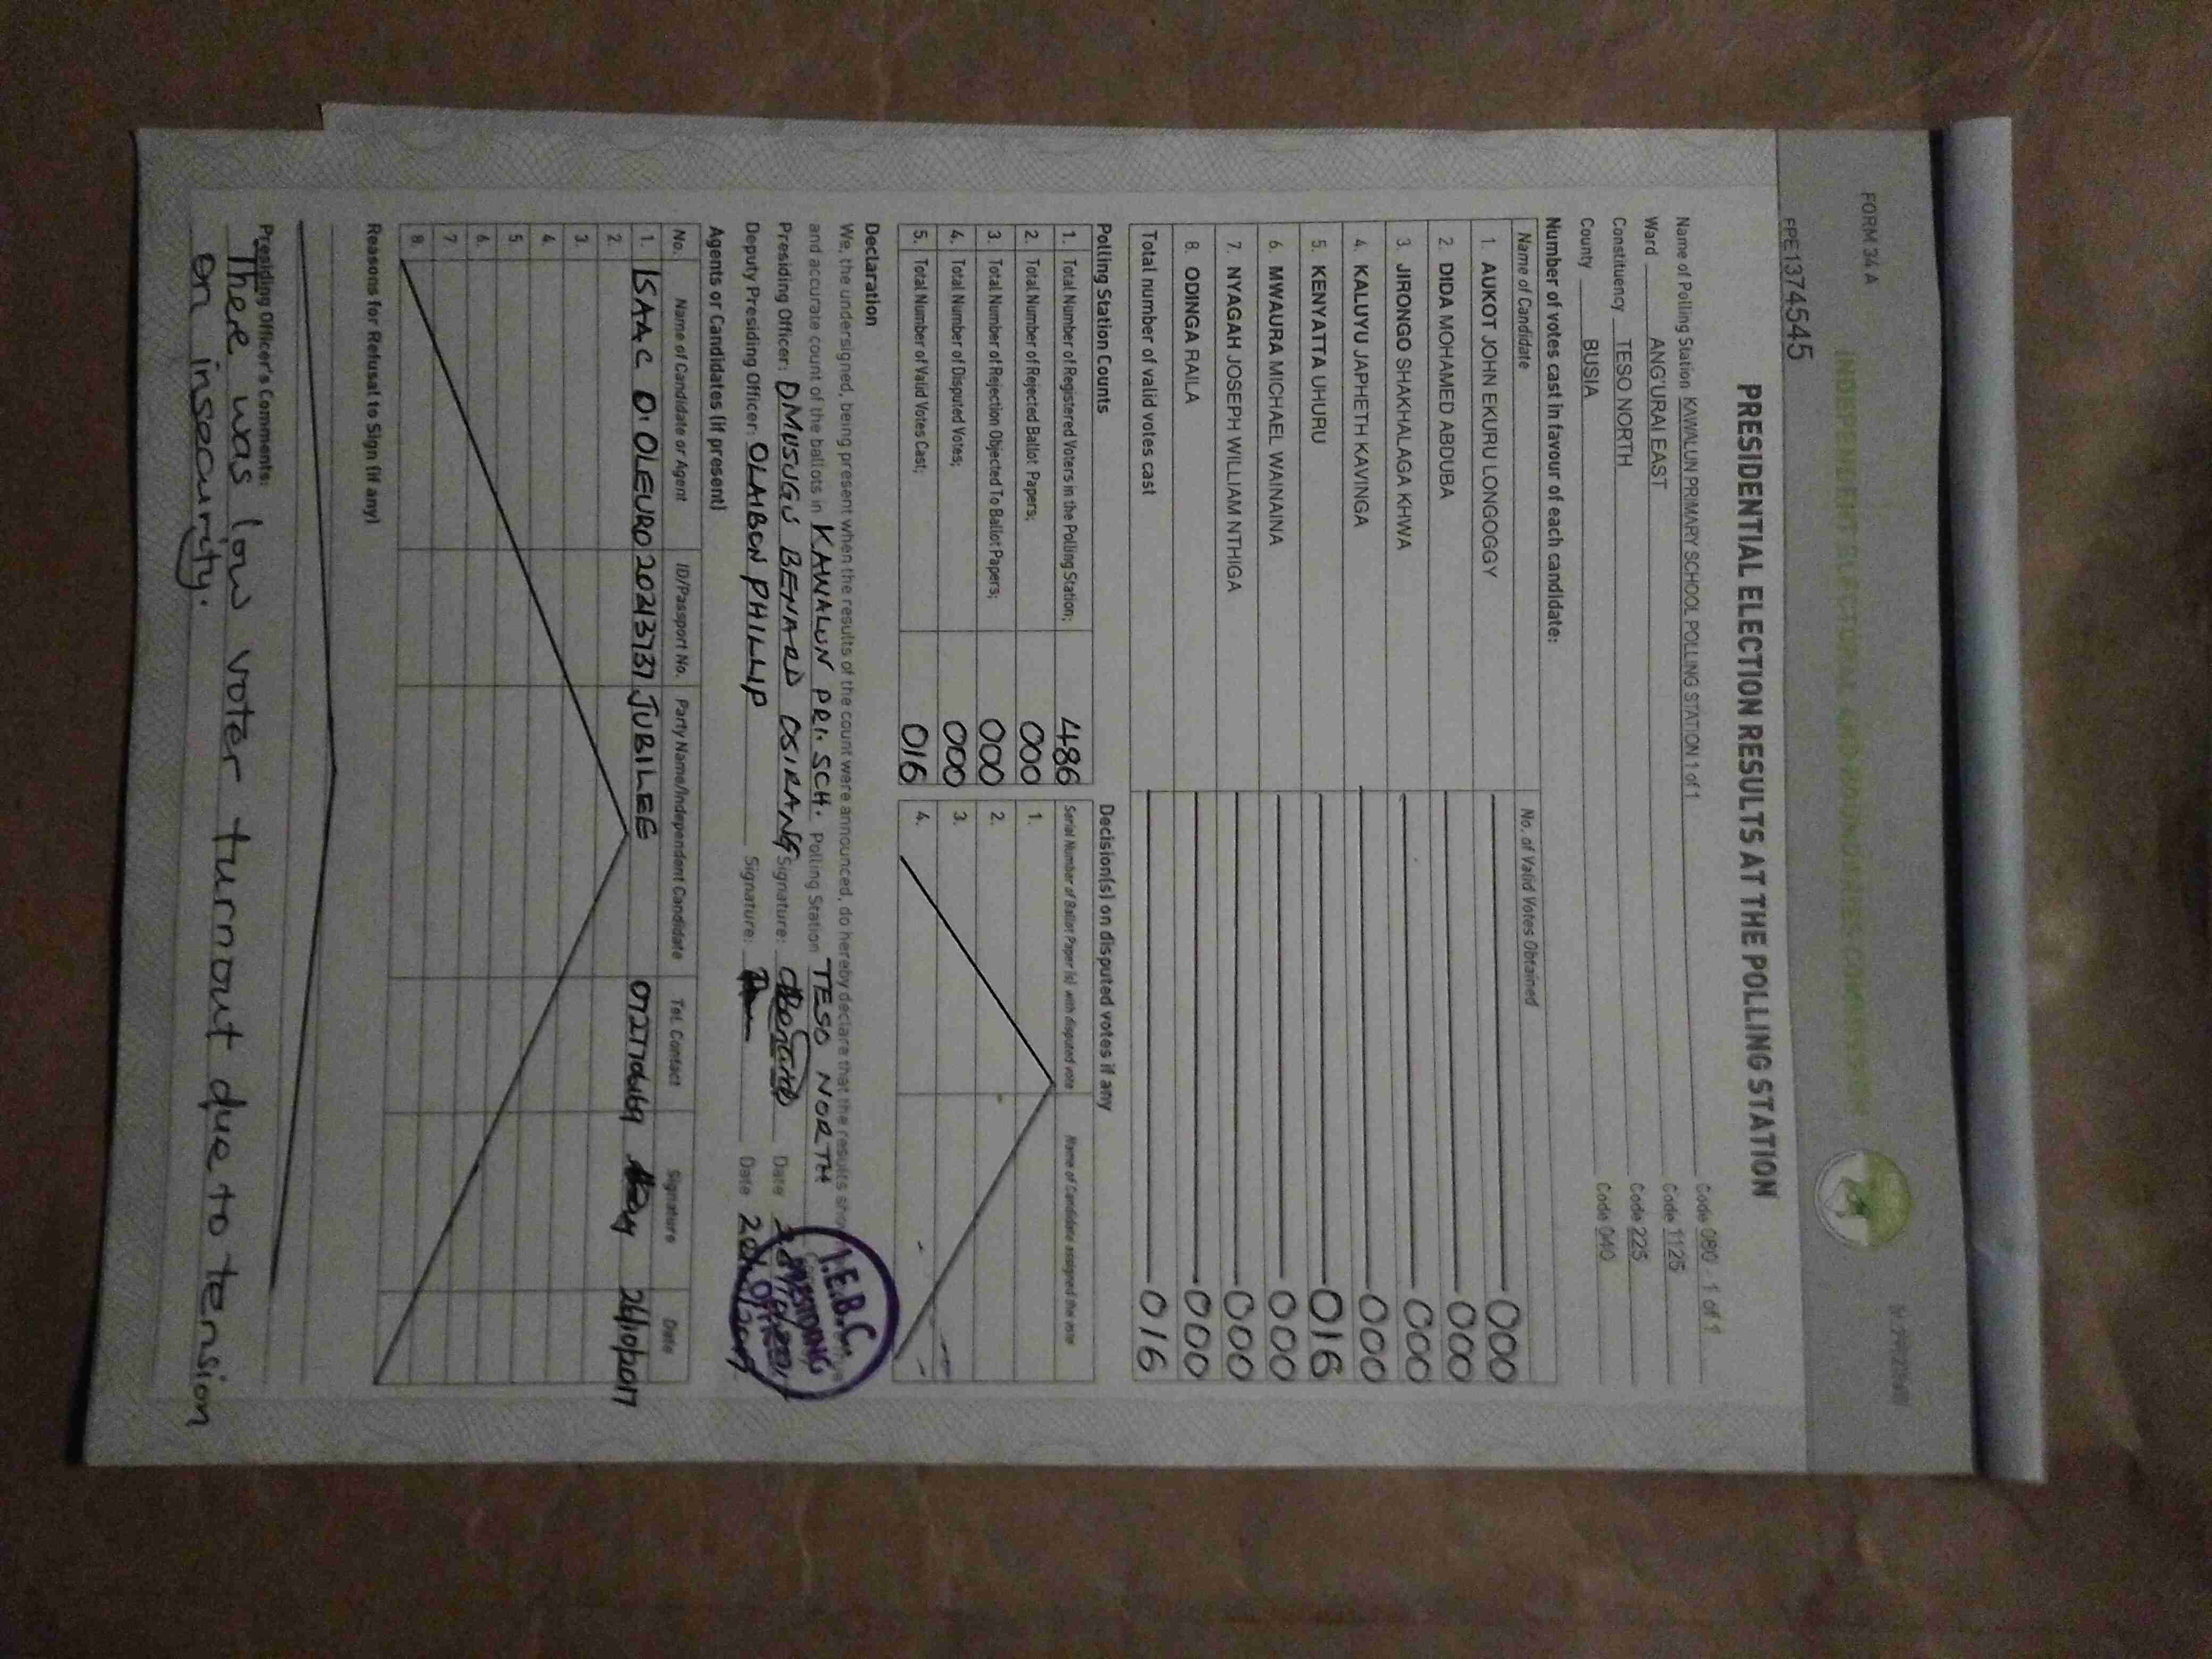 FORM 34 A
INDEPENDENT ELECTORAL AND BOUNDARIES COMMISSION
PPE1374545
PRESIDENTIAL ELECTION RESULTS AT THE POLLING STATION
Name of Polling Station KAWALUN PRIMARY SCHOOL POLLING STATION 1 of 1 Code 080 1 of 1
Ward ANG'URAI EAST Code 1125
Constituency TESO NORTH Code 225
County BUSIA Code 040
Number of votes cast in favour of each candidate:
Name of Candidate No. of Valid Votes Obtained
1. AUKOT JOHN EKURU LONGOGGY 000
2. DIDA MOHAMED ABDUBA 000
3. JIRONGO SHAKHALAGA KHWA 000
4. KALUYU JAPHETH KAVINGA 000
5. KENYATTA UHURU 016
6. MWAURA MICHAEL WAINAINA 000
7. NYAGAH JOSEPH WILLIAM NTHIGA 000
8. ODINGA RAILA 000
Total number of valid votes cast 016
Polling Station Counts
1. Total Number of Registered Voters in the Polling Station; 486
2. Total Number of Rejected Ballot Papers; 000
3. Total Number of Rejection Objected To Ballot Papers; 000
4. Total Number of Disputed Votes; 000
5. Total Number of Valid Votes Cast; 016
Decision(s) on disputed votes if any
Serial Number of Ballot Paper (s) with disputed vote Name of Candidate assigned the vote
1.
2.
3.
4.
Declaration
We, the undersigned, being present when the results of the count were announced, do hereby declare that the results
and accurate count of the ballots in KAWALUN PRI. SCH. Polling Station TESO NORTH
Presiding Officer: OMUSUGU BENARD OSIRANG Signature: Date
Deputy Presiding Officer: OLAIBON PHILLIP Signature: Date
I.E.B.C.
PRESIDING
OFFICER
Agents or Candidates (if present)
No. Name of Candidate or Agent ID/Passport No. Party Name/Independent Candidate Tel. Contact Signature Date
1. ISAAC O. OLEURO 20213737 JUBILEE 0727706169 26/10/2017
2.
3.
4.
5.
6.
7.
8.
Reasons for Refusal to Sign (if any)
Presiding Officer's Comments:
There was low voter turnout due to tension
on insecurity.